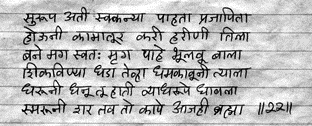 सुरूप अती स्वकन्या पाहता प्रजापिता
होऊनी कामातूर करी हरीणी तिला
बने मग स्वतः मृग पाहे भूलवू बाला
शिकविण्या धडा तेव्हा धमकावूनी त्याला
धरूनी धनू तू हाती व्याधरूप धावला
स्मरूनी शर तव तो कापे आजही ब्रह्मा ॥२२॥